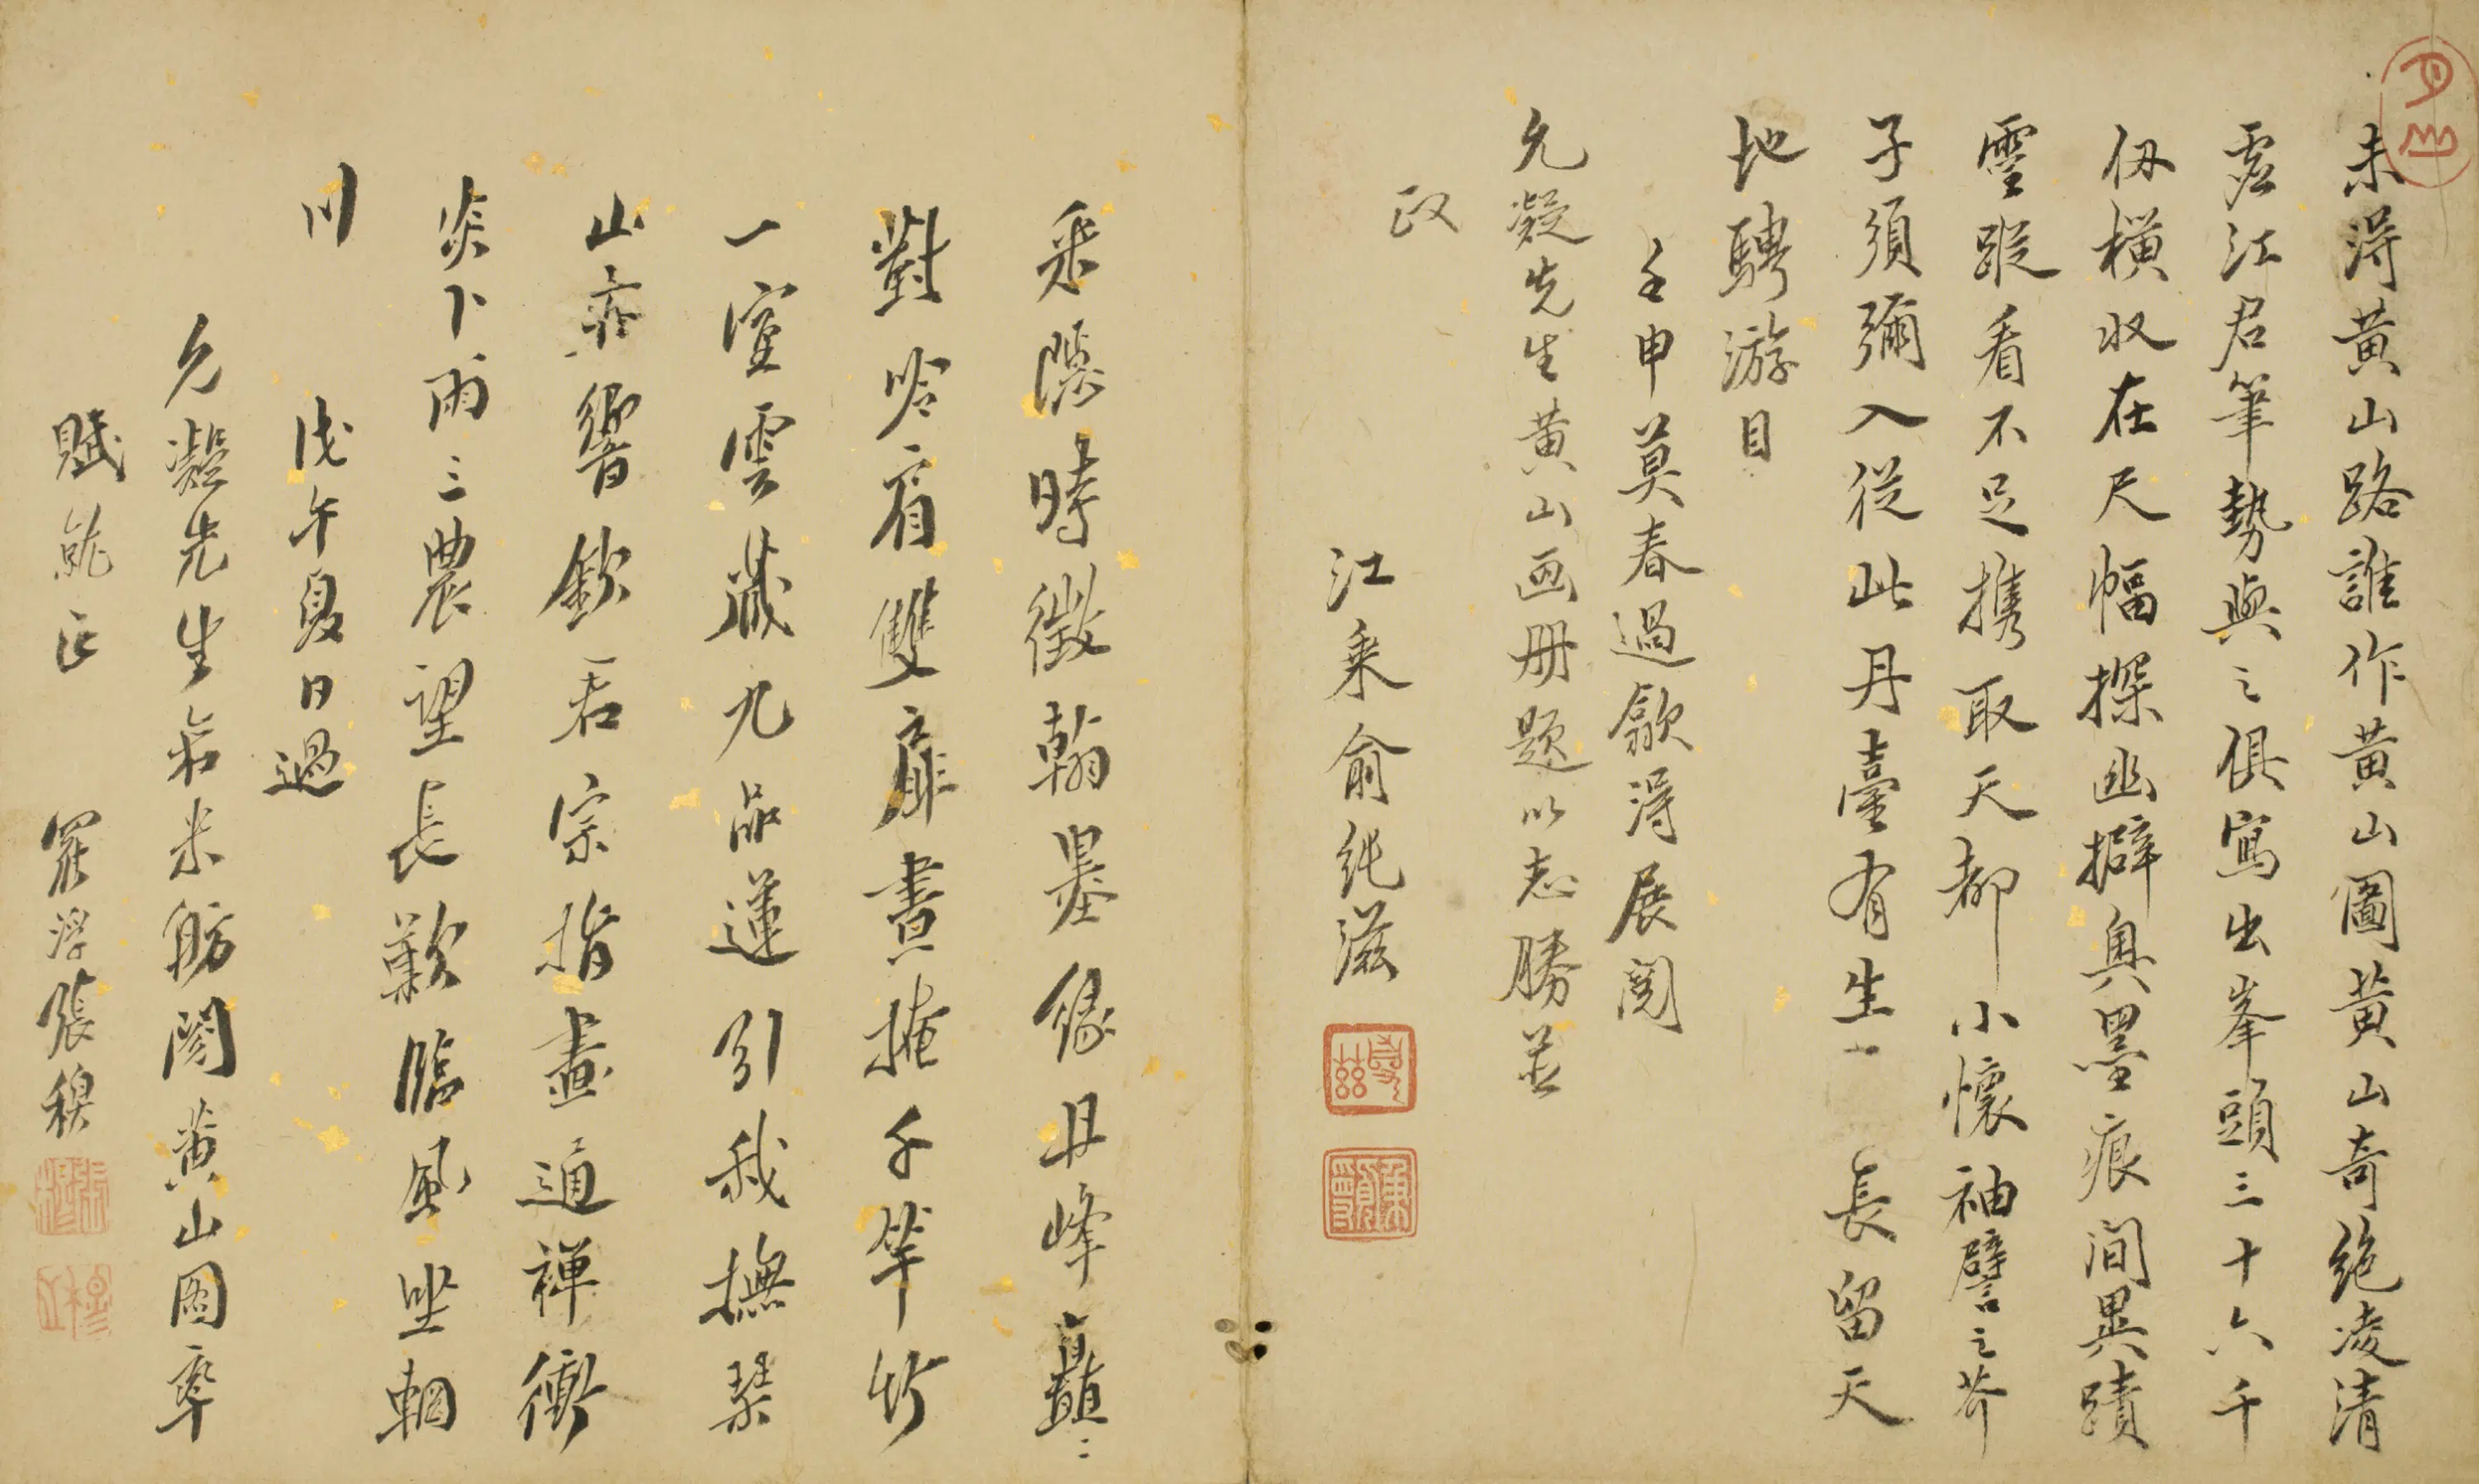 未得黄山路誰作黄山圖黄山奇絶凌清
虛江君筆勢與之俱寫出峯頭三十六千
仭橫収在尺幅探幽擗奥墨痕间異蹟
靈蹤看不足携取天都小懷袖譬之芥
子須彌入從此丹臺有生一長留天
地騁游目
壬申莫春過歙得展閱
允凝先生黄山画册題以志勝並
政
江乘俞純滋
采隱時徵翰墨緣丹峰矗〻
對吟肩雙扉晝掩千竿竹
一室雲藏九品蓮引我撫琴
山亦響欽君宗指畫通禪衝
炎卜雨三農望長歎臨風坐輞
川
戊午夏日過
允凝先生齋米舫閱黄山图率
賦就正
羅浮張穆